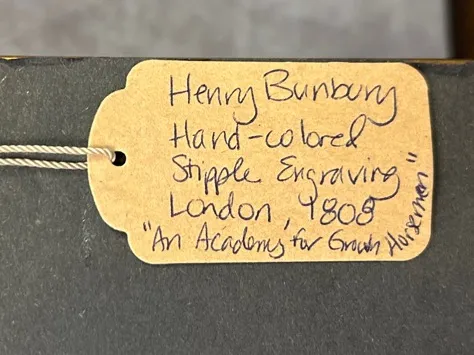 Henry Bunbury
Hand-colored
Stipple Engraving
London, 1808
"An Academy for Grown Horsemen"